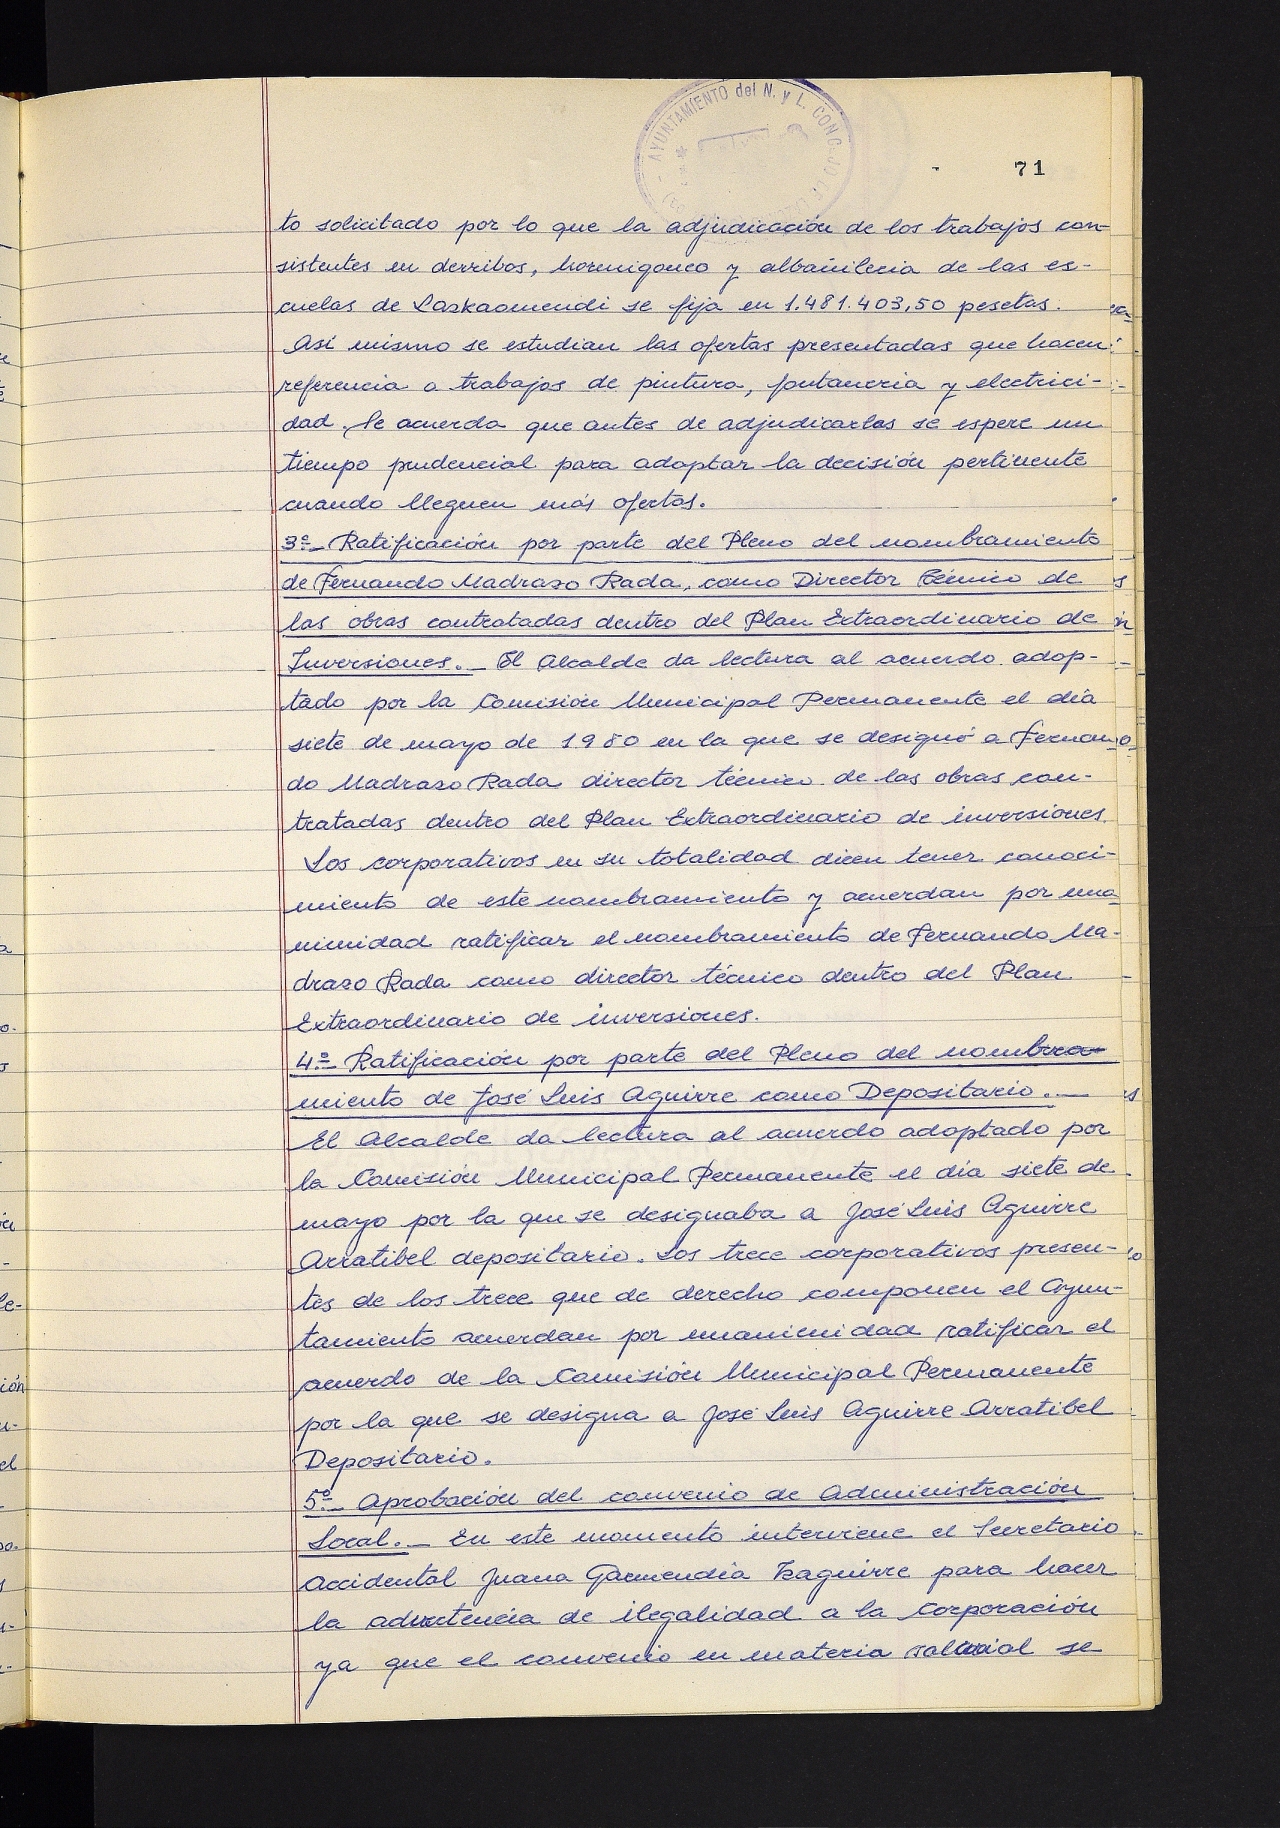 AYUNTAMIENTO del N. y L. CONCEJO
71
to solicitado por lo que la adjudicación de los trabajos con-
sistentes en derribos, hormigoneo y albañilecia de las es-
cuelas de Lazkaomendi se fija en 1.481.403,50 pesetas.
Asi mismo se estudian las ofertas presentadas que hacen
referencia a trabajos de pintura, fontaneria y electrici-
dad. Se acuerda que antes de adjudicarlas se espere un
tiempo prudencial para adoptar la decisión pertinente
cuando lleguen más ofertas.
3º- Ratificación por parte del Pleno del nombramiento
de Fernando Madrazo Rada, como Director Técnico de
las obras contratadas dentro del Plan Extraordinario de
Inversiones.- El Alcalde da lectura al acuerdo adop-
tado por la Comisión Municipal Permanente el día
siete de mayo de 1980 en la que se designó a Fernan-
do Madrazo Rada director técnico de las obras con-
tratadas dentro del Plan Extraordinario de inversiones.
Los corporativos en su totalidad dicen tener conoci-
miento de este nombramiento y acuerdan por una-
nimidad ratificar el nombramiento de Fernando Ma-
drazo Rada como director técnico dentro del Plan
Extraordinario de inversiones.
4º- Ratificación por parte del Pleno del nombra-
miento de José Luis Aguirre como Depositario.-
El Alcalde da lectura al acuerdo adoptado por
la Comisión Municipal Permanente el día siete de
mayo por la que se designaba a José Luis Aguirre
Arratibel depositario. Los trece corporativos presen-
tes de los trece que de derecho componen el Ayun-
tamiento acuerdan por unanimidad ratificar el
acuerdo de la Comisión Municipal Permanente
por la que se designa a José Luis Aguirre Arratibel
Depositario.
5º- Aprobación del convenio de Administración
Local.- En este momento interviene el Secretario
Accidental Juana Garmendia Izaguirre para hacer
la advertencia de ilegalidad a la Corporación
ya que el convenio en materia salarial se